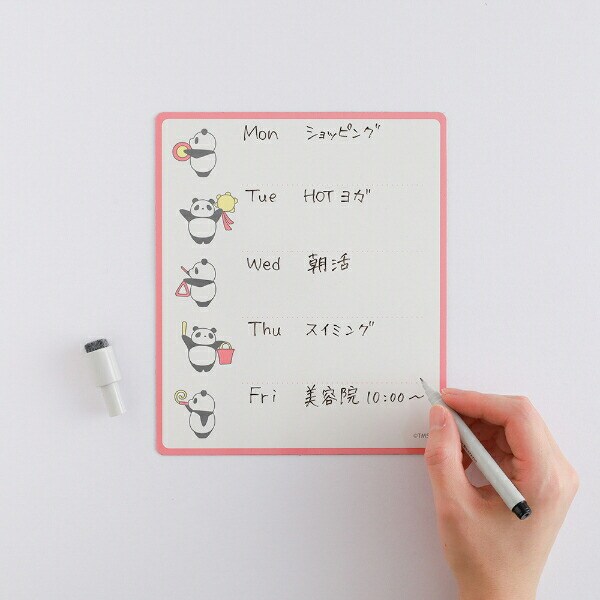 Mon ショッピング
Tue HOT ヨガ
Wed 朝活
Thu スイミング
Fri 美容院 10:00〜